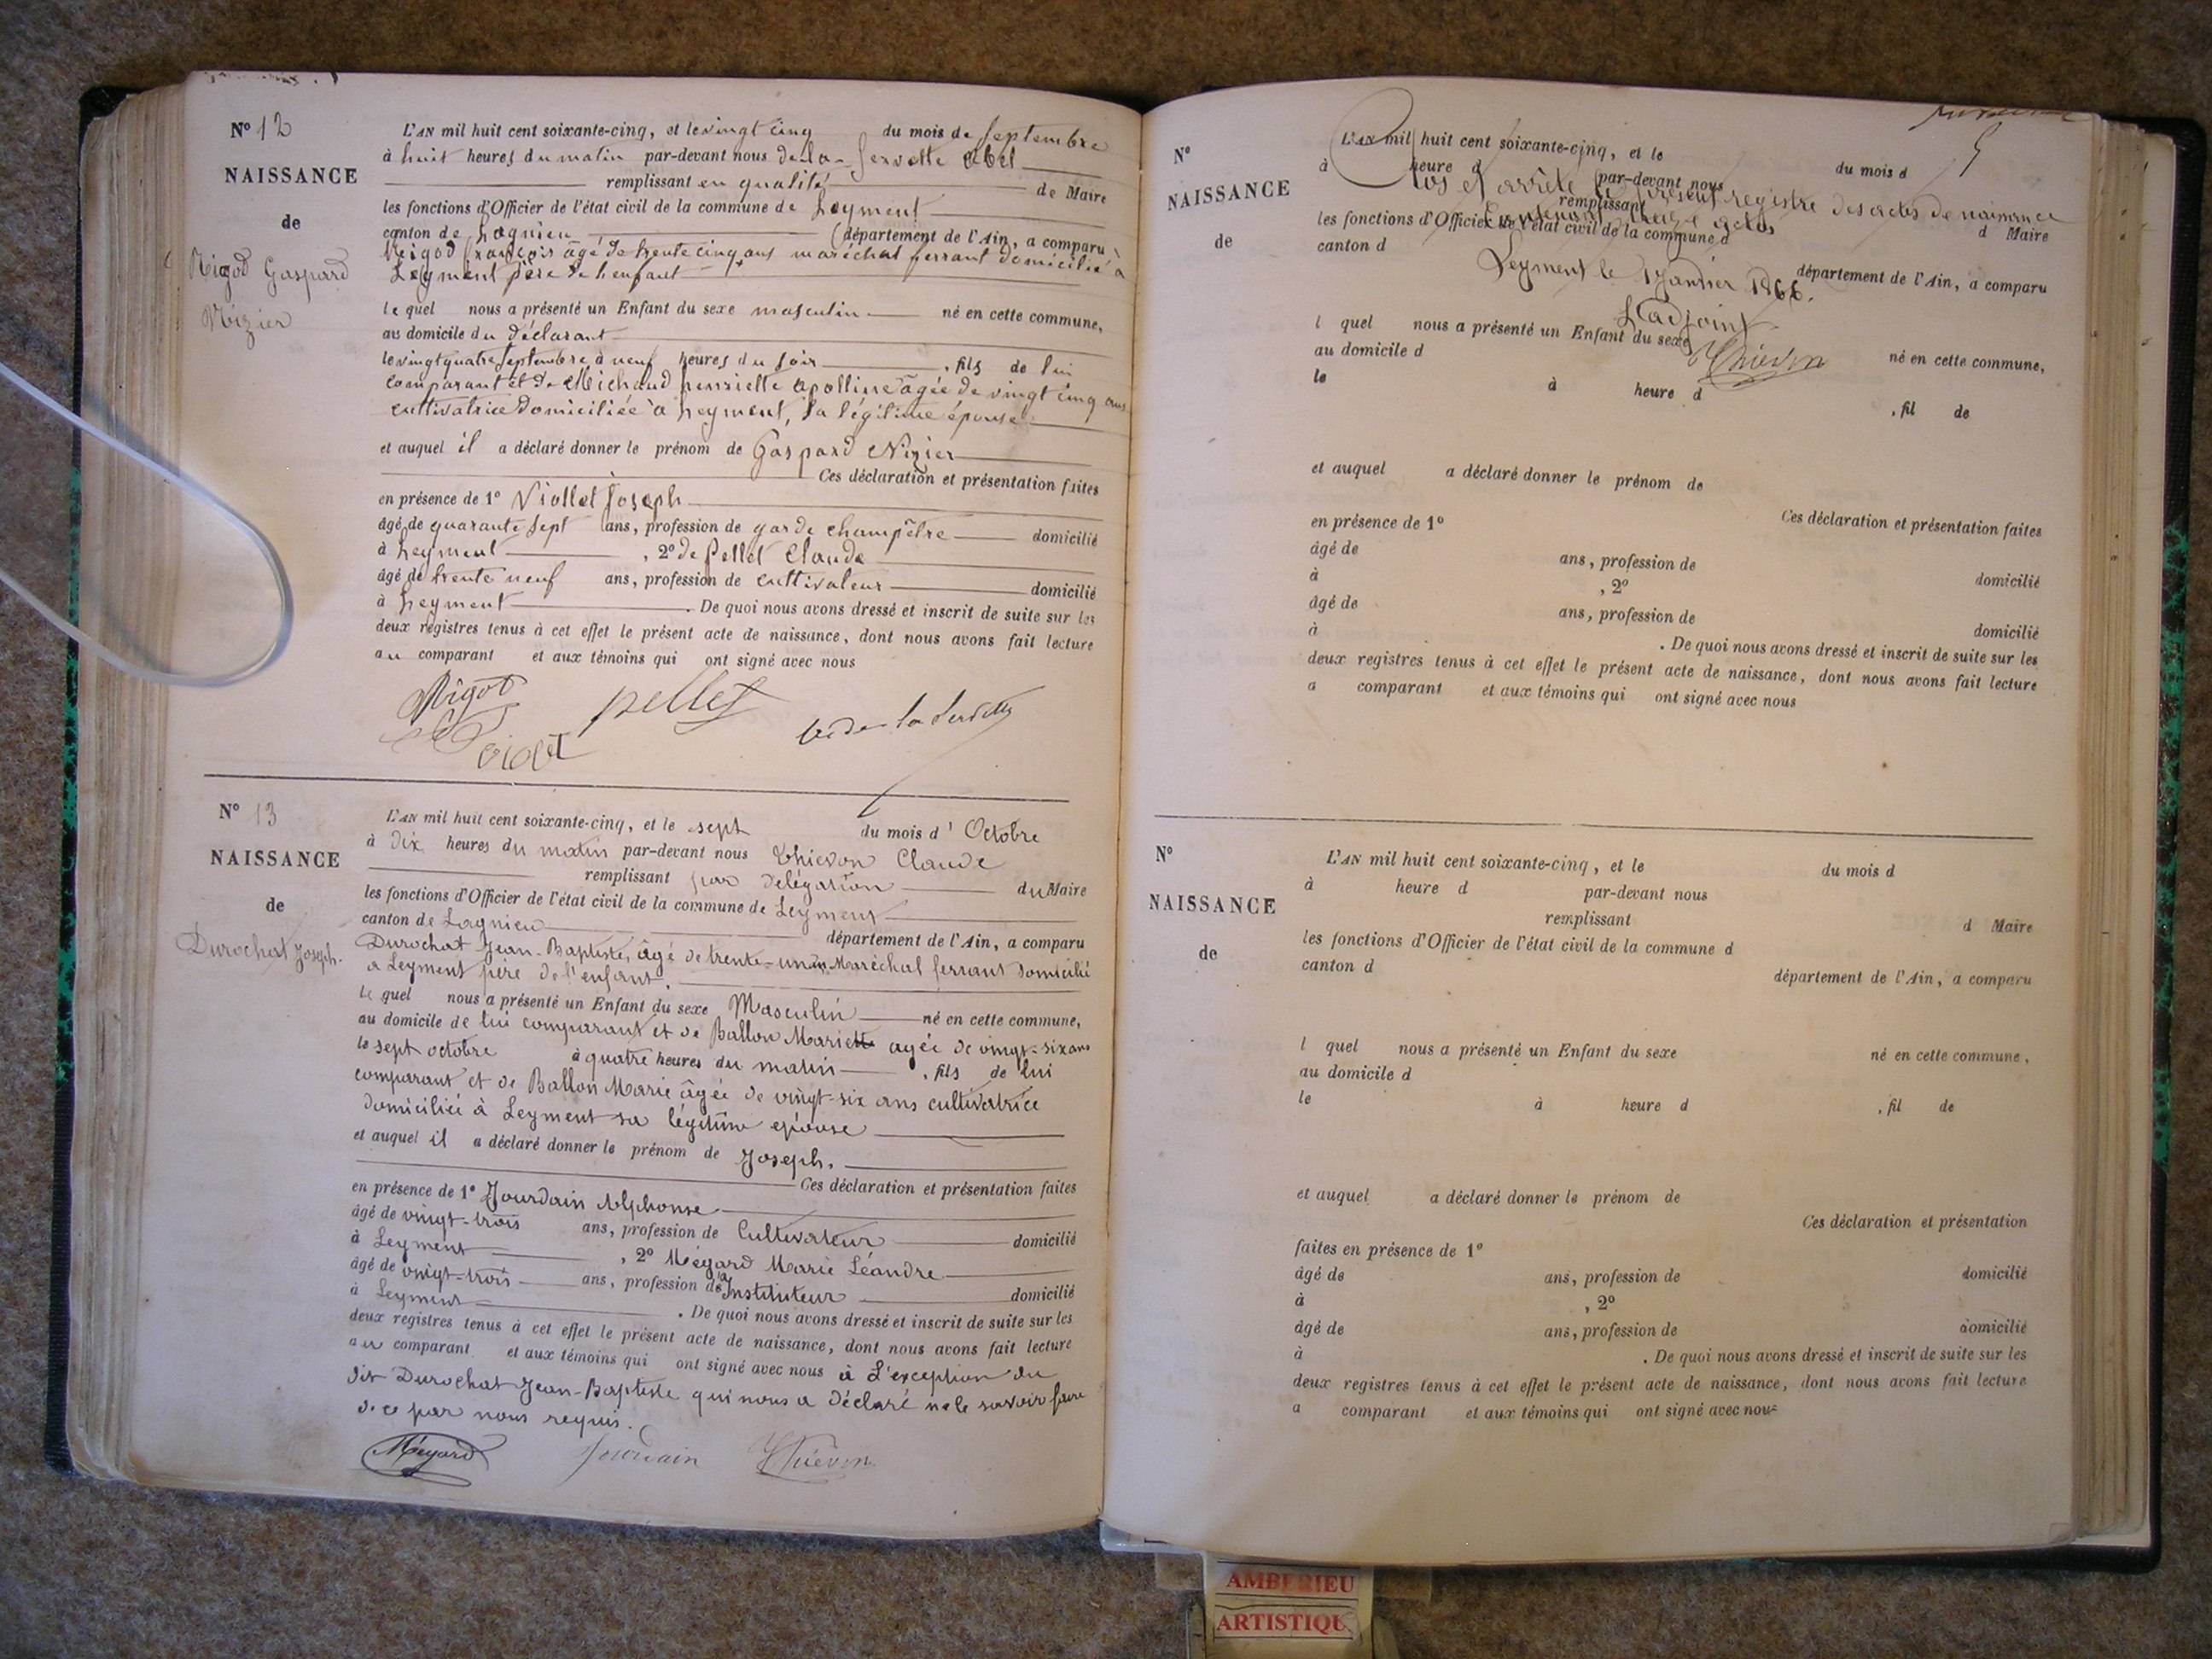 N° 12
NAISSANCE
de
Rigod Gaspard
Nizier
L'AN mil huit cent soixante-cinq, et le vingt cinq du mois de Septembre
à huit heures du matin par-devant nous de la Servette Abel
remplissant en qualité de Maire
les fonctions d'Officier de l'état civil de la commune de Leyment
canton de Lagnieu département de l'Ain, a comparu
Rigod François âgé de trente cinq ans maréchal ferrant domicilié à
Leyment père de l'enfant
le quel nous a présenté un Enfant du sexe masculin né en cette commune,
au domicile du déclarant
le vingt quatre Septembre à neuf heures du soir , fils de lui
comparant et de Michaud henriette apolline âgée de vingt cinq ans
cultivatrice domiciliée à Leyment, sa légitime épouse
et auquel il a déclaré donner le prénom de Gaspard Nizier
Ces déclaration et présentation faites
en présence de 1° Viollet Joseph
âgé de quarante sept ans, profession de garde champêtre domicilié
à Leyment , 2° de Pellet Claude
âgé de trente neuf ans, profession de cultivateur domicilié
à Leyment . De quoi nous avons dressé et inscrit de suite sur les
deux registres tenus à cet effet le présent acte de naissance, dont nous avons fait lecture
au comparant et aux témoins qui ont signé avec nous
Rigod pellet
N° 13
NAISSANCE
de
Durochat Joseph.
L'AN mil huit cent soixante-cinq, et le sept du mois d' Octobre
à dix heures du matin par-devant nous Thievon Claude
remplissant par délégation du Maire
les fonctions d'Officier de l'état civil de la commune de Leyment
canton de Lagnieu département de l'Ain, a comparu
Durochat Jean-Baptiste, âgé de trente-un ans Maréchal ferrant domicilié
à Leyment père de l'enfant.
le quel nous a présenté un Enfant du sexe Masculin né en cette commune,
au domicile de lui comparant et de Ballon Marie âgée de vingt-six ans
le sept octobre à quatre heures du matin , fils de lui
comparant et de Ballon Marie âgée de vingt-six ans cultivatrice
domiciliée à Leyment sa légitime épouse
et auquel il a déclaré donner le prénom de Joseph.
Ces déclaration et présentation faites
en présence de 1° Jourdain Alphonse
âgé de vingt-trois ans, profession de Cultivateur domicilié
à Leyment , 2° Mégard Marie Léandre
âgé de vingt-trois ans, profession d'Instituteur domicilié
à Leyment . De quoi nous avons dressé et inscrit de suite sur les
deux registres tenus à cet effet le présent acte de naissance, dont nous avons fait lecture
au comparant et aux témoins qui ont signé avec nous à L'exception du
dit Durochat Jean-Baptiste qui nous a déclaré ne le savoir faire
de ce par nous requis.
Mégard Jourdain Thievon
N°
NAISSANCE
de
L'AN mil huit cent soixante-cinq, et le du mois d
à heure d par-devant nous
Clos et arrêté le présent registre des actes de naissance
remplissant d Maire
contenant treize actes
les fonctions d'Officier de l'état civil de la commune d
canton d département de l'Ain, a comparu
Leyment le 1 Janvier 1866.
L'adjoint
l quel nous a présenté un Enfant du sexe né en cette commune,
Thievon
au domicile d
le à heure d , fil de
et auquel a déclaré donner le prénom de
Ces déclaration et présentation faites
en présence de 1°
âgé de ans, profession de domicilié
à , 2°
âgé de ans, profession de domicilié
à . De quoi nous avons dressé et inscrit de suite sur les
deux registres tenus à cet effet le présent acte de naissance, dont nous avons fait lecture
a comparant et aux témoins qui ont signé avec nous
N°
NAISSANCE
de
L'AN mil huit cent soixante-cinq, et le du mois d
à heure d par-devant nous
remplissant d Maire
les fonctions d'Officier de l'état civil de la commune d
canton d département de l'Ain, a comparu
l quel nous a présenté un Enfant du sexe né en cette commune,
au domicile d
le à heure d , fil de
et auquel a déclaré donner le prénom de
Ces déclaration et présentation
faites en présence de 1°
âgé de ans, profession de domicilié
à , 2°
âgé de ans, profession de domicilié
à . De quoi nous avons dressé et inscrit de suite sur les
deux registres tenus à cet effet le présent acte de naissance, dont nous avons fait lecture
a comparant et aux témoins qui ont signé avec nous
AMBERIEU
ARTISTIQU